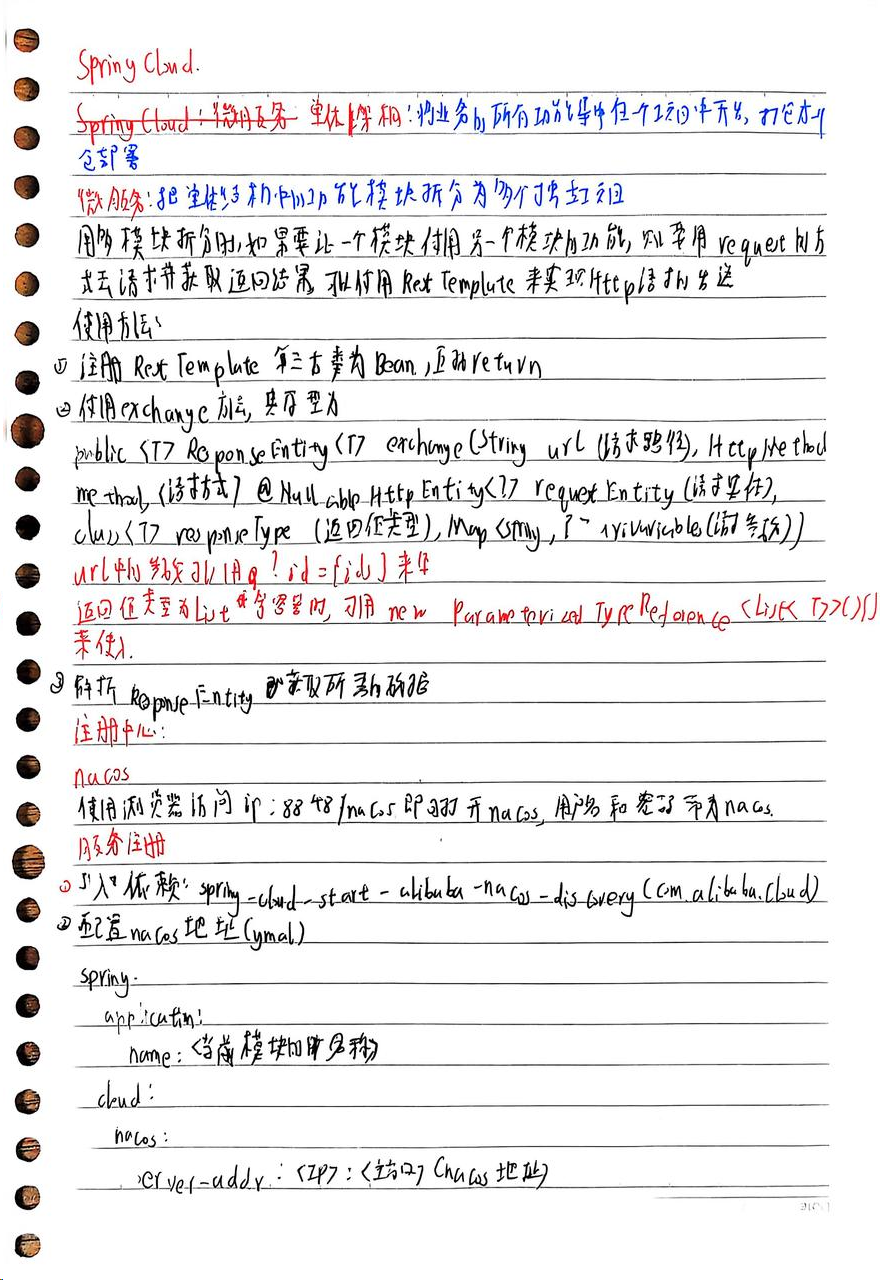 Spring Cloud.
Spring Cloud：微服务 单体架构：将业务的所有功能集中在一个项目中开发，打包成一个
包部署
微服务：把单体结构中的功能模块拆分为多个独立项目
用多模块拆分时，如果要让一个模块使用另一个模块的功能，则要用request的方
式去请求并获取返回结果，可以使用RestTemplate来实现Http请求的发送
使用方法：
① 注册RestTemplate第三方类为Bean，直接return
② 使用exchange方法，其原型为
public <T> ResponseEntity<T> exchange(String url (请求路径), HttpMethod
method, (请求方式) @Nullable HttpEntity<?> requestEntity (请求实体),
class<T> responseType (返回值类型), Map<String, ? uriVariables(请求参数))
url中的参数可以用 ?id={id} 来
返回值类型为List 等容器时，可用 new ParameterizedTypeReference<List<T>>(){}
来传入.
③ 解析ReponseEntity 获取所需的数据
注册中心：
nacos
使用浏览器访问 ip：8848/nacos 即可打开nacos, 用户名和密码都为nacos.
服务注册
① 引入依赖：spring-cloud-start-alibaba-nacos-discovery(com.alibaba.cloud)
② 配置nacos地址(ymal)
spring.
application:
name：<当前模块的服务名称>
cloud：
nacos：
server-addr：<IP>：<端口> (nacos地址)